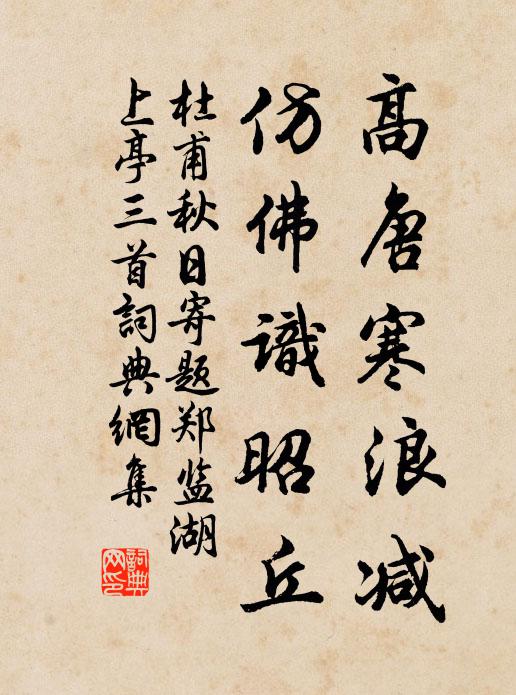 高唐寒浪减
仿佛識昭丘
杜甫秋日寄题郑监湖
上亭三首詞典網集
詞典
网印